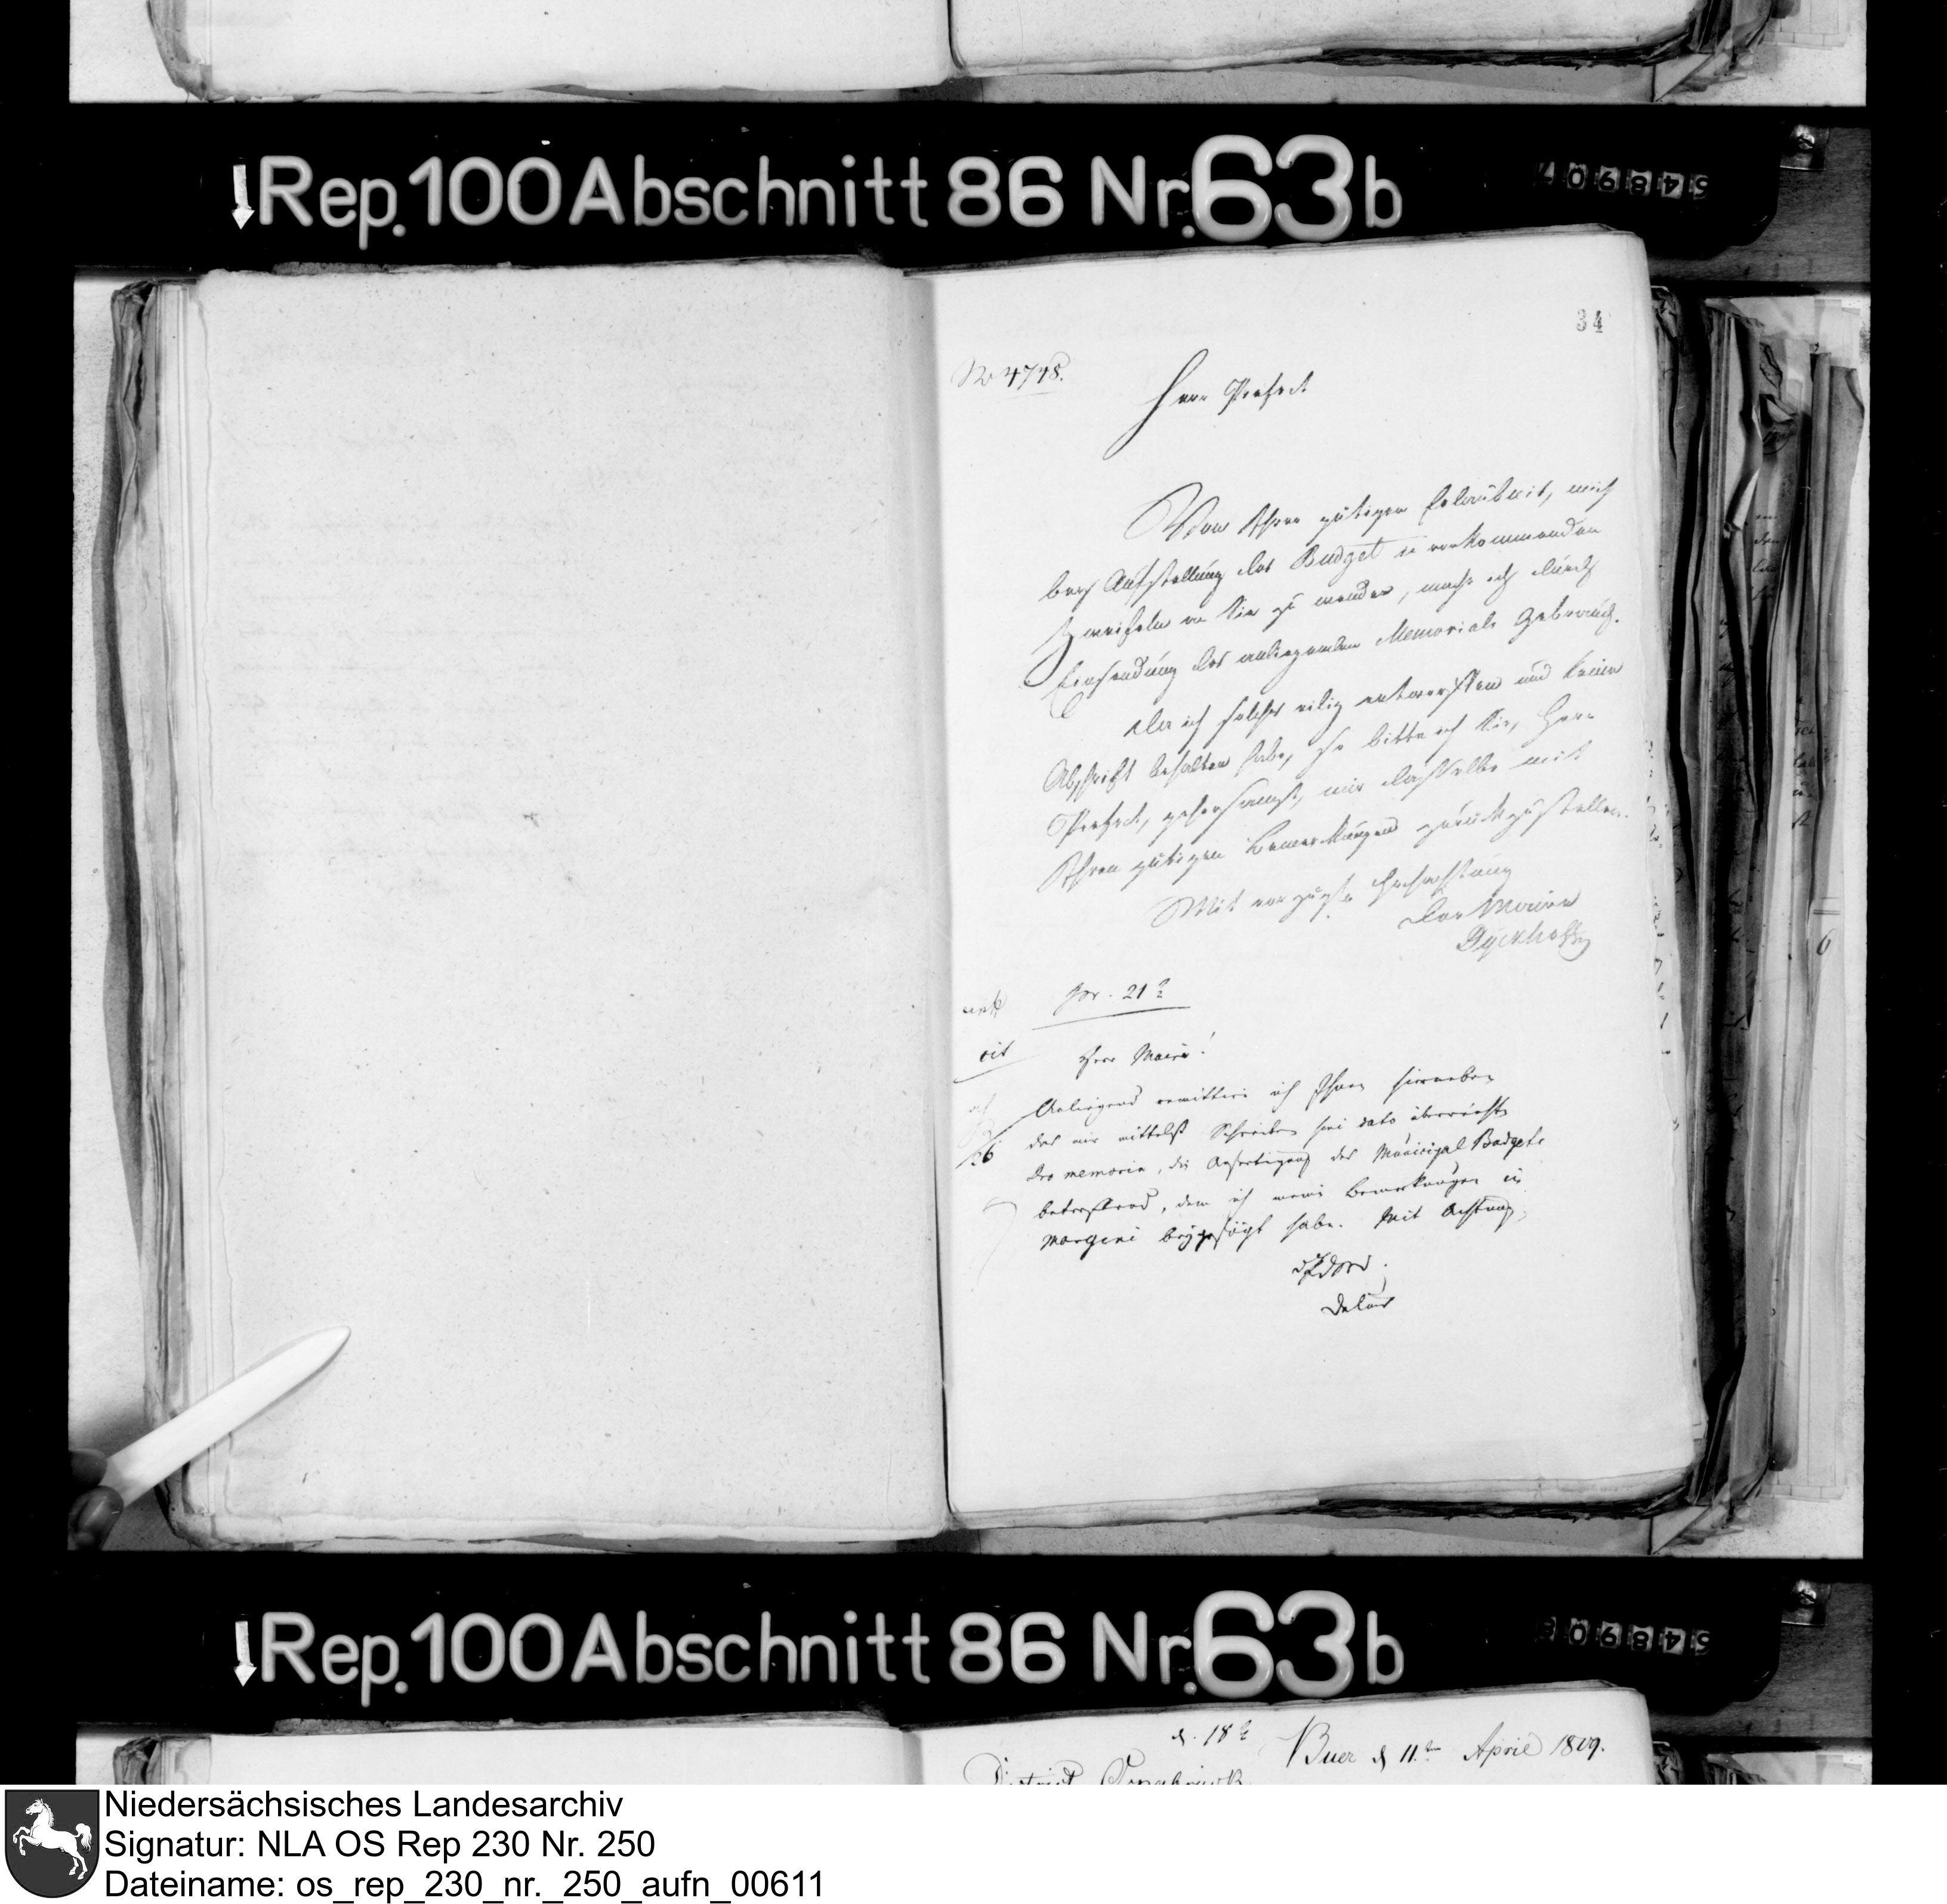 Rep. 100 Abschnitt 86 Nr. 63 b
548907
34
No 4748.
Herr Präfect
Von Ihrer gütigen Erlaubnis, mich
bey Aufstellung des Budget in vorkommenden
Zweifeln an Sie zu wenden, mache ich durch
Einsendung des anliegenden Memorials Gebrauch.
Da ich solches eilig entworffen und keine
Abschrift behalten habe, so bitte ich Sie, Herr
Präfect, gehorsamst, mir dasselbe mit
Ihren gütigen Bemerkungen zurückzustellen.
Mit vorzügl. Hochachtung
Der Maire
Dyckhoff
pr. 21
cit
Herr Maire!
Anliegend remittire ich Ihnen hierneben
das mir mittelst Schreiben sine dato überreichte
Pro memoria, die Anfertigung des Municipal Budgets
betreffend, dem ich meine Bemerkungen in
margini beygefügt habe. Mit Achtung,
26
Delius
Rep. 100 Abschnitt 86 Nr. 63 b
548908
d. 18t
Buer d 11.ten April 1809.
District Osnabrück
Niedersächsisches Landesarchiv
Signatur: NLA OS Rep 230 Nr. 250
Dateiname: os_rep_230_nr._250_aufn_00611